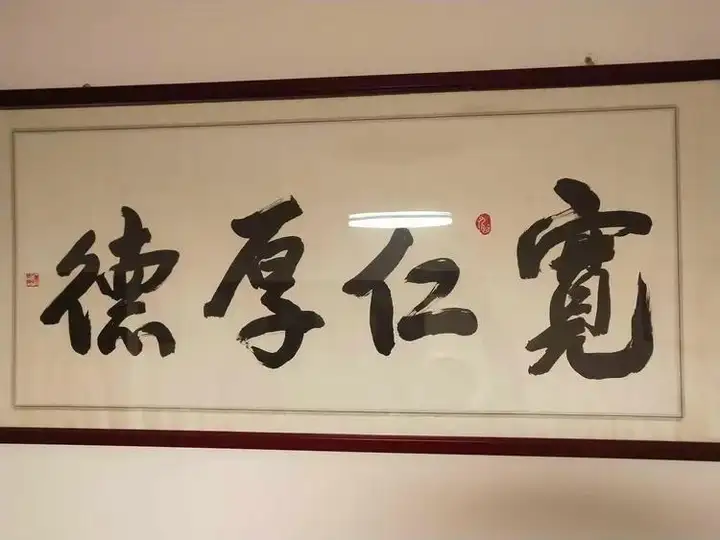 寬仁厚德